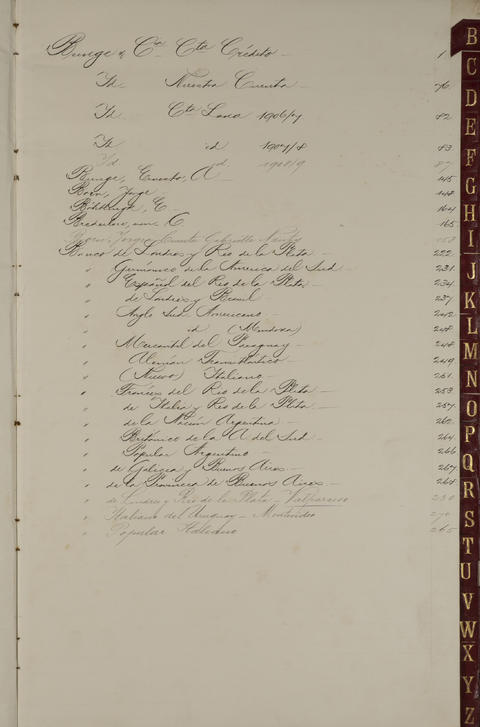 Bunge & Cia Cta Crédito 1
Id Nuestra Cuenta 76
Id Cta Lana 1906/7 82
Id id 1907/8 83
Id id 1908/9 87
Bunge, Ernesto, A 145
Born, Jorge 148
E. 164
C. 165
Born, Jorge Cuenta
Banco de Londres y Rio de la Plata 222
" Germánico de la America del Sud 231
" Español del Rio de la Plata 234
" de Londres y Brasil 237
" Anglo Sud Americano 242
" id (Mendoza) 248
" Mercantil del Paraguay 248
" Alemán Transatlántico 249
" (Nuevo) Italiano 251
" Francés del Rio de la Plata 253
" de Italia y Rio de la Plata 257
" de la Nación Argentina 262
" Británico de la A. del Sud 264
" Popular Argentino 266
" de Galicia y Buenos Aires 267
" de la Provincia de Buenos Aires 268
" de Londres y Rio de la Plata - Valparaiso 230
" Italiano del Uruguay - Montevideo 270
" Popular Italiano 265
B
C
D
E
F
G
H
I
J
K
L
M
N
O
P
Q
R
S
T
U
V
W
X
Y
Z